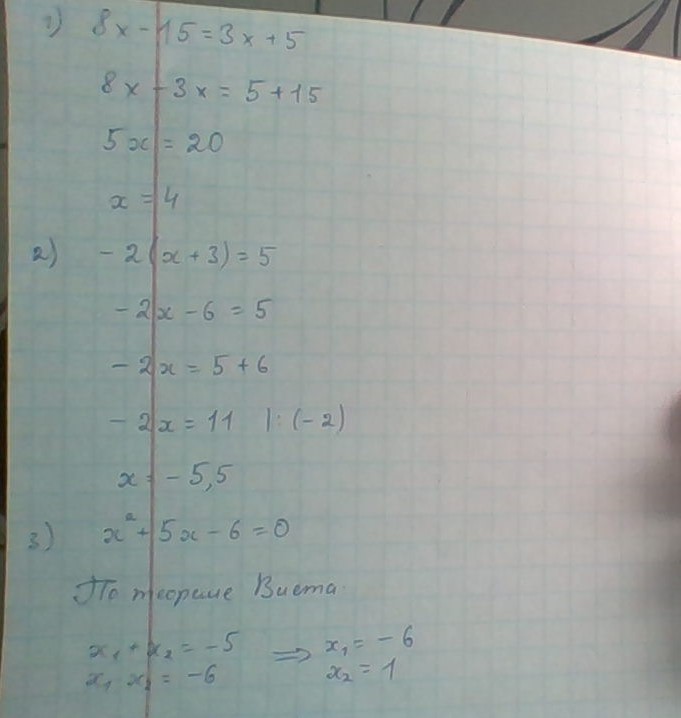 1) 8x - 15 = 3x + 5
8x - 3x = 5 + 15
5x = 20
x = 4
2) - 2(x + 3) = 5
- 2x - 6 = 5
- 2x = 5 + 6
- 2x = 11 |: (- 2)
x = - 5,5
3) x² + 5x - 6 = 0
По теореме Виета.
x₁ + x₂ = - 5 ⇒ x₁ = - 6
x₁ x₂ = - 6 x₂ = 1